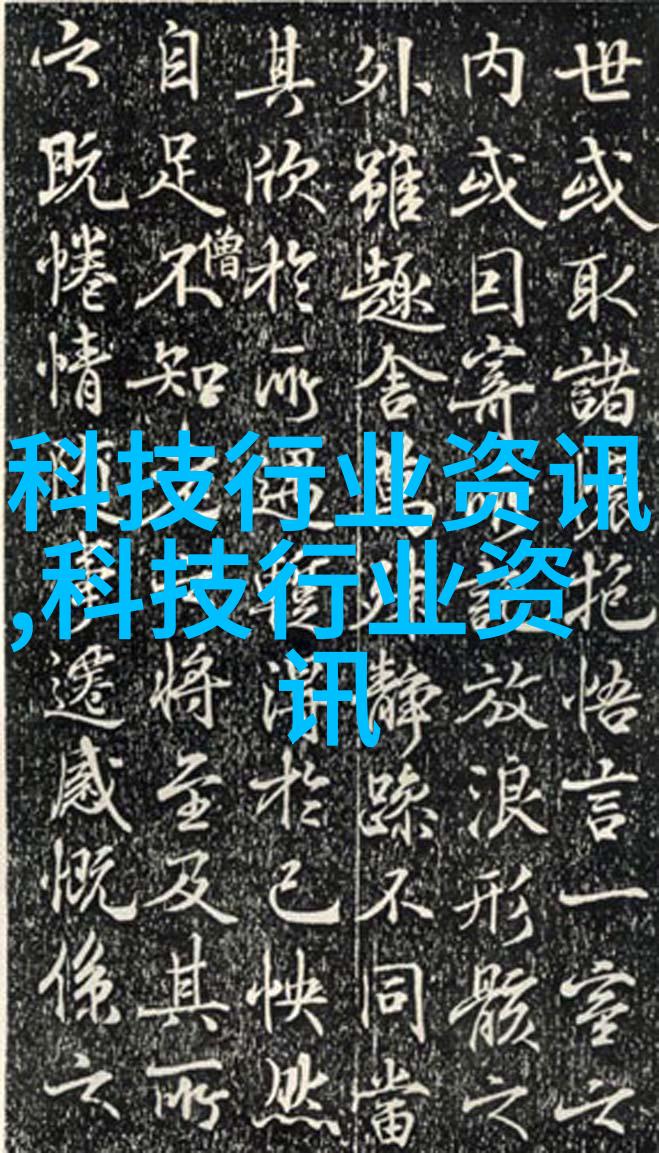 世或取諸懷抱悟言一室之
内或因寄所託放浪形骸之
外雖趣舍萬殊靜躁不同當
其欣於所遇蹔得於己怏然
自足不知將至及其所
僧
之既惓情隨事遷感慨係之
科技行业资讯
,科技行业资
讯